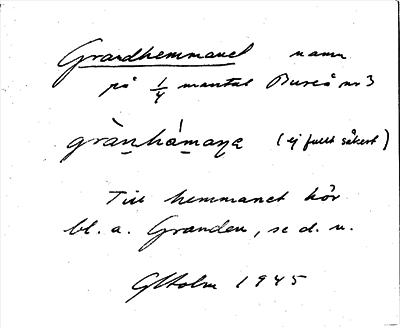 Grandhemmanet namn
på 1/4 mantal Bureå nr 3
grànhámaṇa (ej fullt säkert)
Till hemmanet hör
bl. a. Granden, se d. u.
GHolm 1945